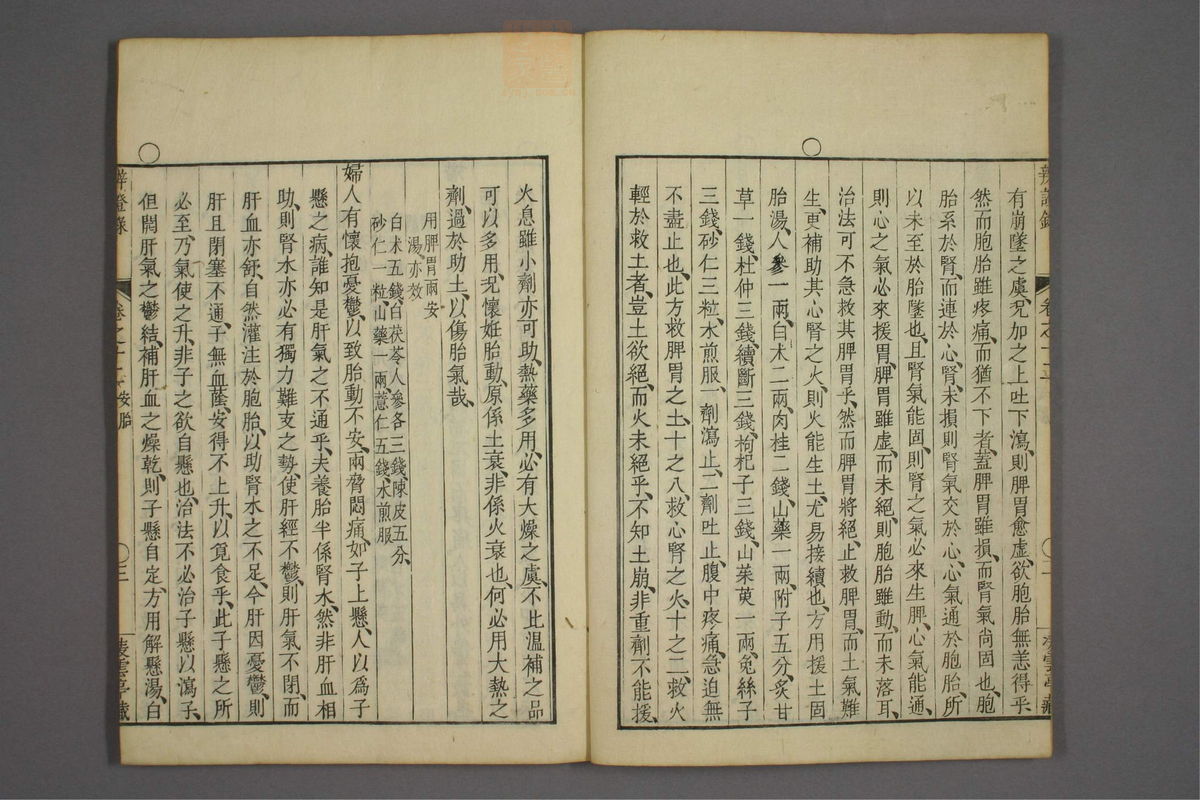 辨證錄
卷之十二
二
有崩墜之虞、况加之上吐下瀉、則脾胃愈虛、欲胞胎無恙得乎
然而胞胎雖疼痛、而猶不下者、蓋脾胃雖損、而腎氣尚固也、胞
胎系於腎、而連於心、腎未損則腎氣交於心、心氣通於胞胎、所
以未至於胎墜也、且腎氣能固、則腎之氣必來生脾、心氣能通、
則心之氣必來援胃、脾胃雖虛、而未絕、則胞胎雖動、而未落耳、
治法可不急救其脾胃乎、然而脾胃將絕、止救脾胃、而土氣難
生、更補助其心腎之火、則火能生土、尤易接續也、方用援土固
胎湯、人參一兩、白朮二兩、肉桂二錢、山藥一兩、附子五分、炙甘
草一錢、杜仲三錢、續斷三錢、枸杞子三錢、山茱萸一兩、兔絲子
三錢、砂仁三粒、水煎服、一劑瀉止、二劑吐止、腹中疼痛、急迫無
不盡止也、此方救脾胃之土、十之八、救心腎之火、十之二、救火
輕於救土者、豈土欲絕、而火未絕乎、不知土崩、非重劑不能援、
火息雖小劑亦可助、熱藥多用、必有大燥之虞、不比溫補之品
可以多用、况懷妊胎動、原係土衰、非係火衰也、何必用大熱之
劑、過於助土、以傷胎氣哉、
用脾胃兩安
湯、亦效
白朮五錢、白茯苓人參各三錢、陳皮五分、
砂仁一粒、山藥一兩、薏仁五錢、水煎服
婦人有懷抱憂鬱、以致胎動不安、兩脅悶痛、如子上懸、人以為子
懸之病、誰知是肝氣之不通乎、夫養胎半係腎水、然非肝血相
助、則腎水亦必有獨力難支之勢、使肝經不鬱、則肝氣不閉、而
肝血亦舒、自然灌注於胞胎、以助腎水之不足、今肝因憂鬱、則
肝且閉塞不通、子無血蔭、安得不上升、以覓食乎、此子懸之所
必至、乃氣使之升、非子之欲自懸也、治法不必治子懸以瀉子、
但開肝氣之鬱結、補肝血之燥乾、則子懸自定、方用解懸湯、白
辨證錄
卷之十二 安胎
三
菱雲亭藏